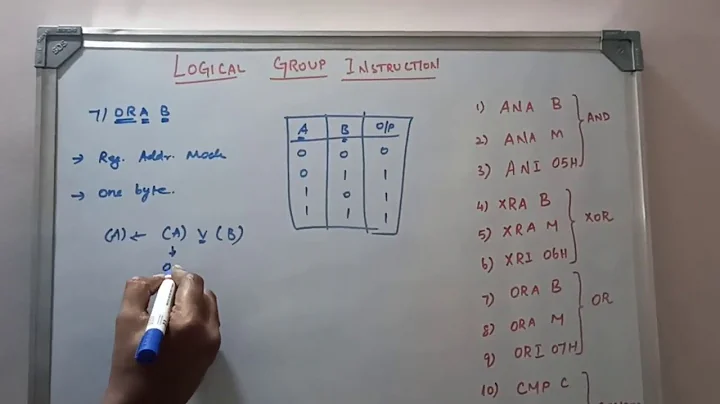 LOGICAL GROUP INSTRUCTION
7) ORA B
→ Reg. Addr. Mode
→ One byte.
(A) ← (A) V (B)
↓
0
A B O/P
0 0 0
0 1 1
1 0 1
1 1 1
1) ANA B
2) ANA M
3) ANI 05H
AND
4) XRA B
5) XRA M
6) XRI 06H
XOR
7) ORA B
8) ORA M
9) ORI 07H
OR
10) CMP C